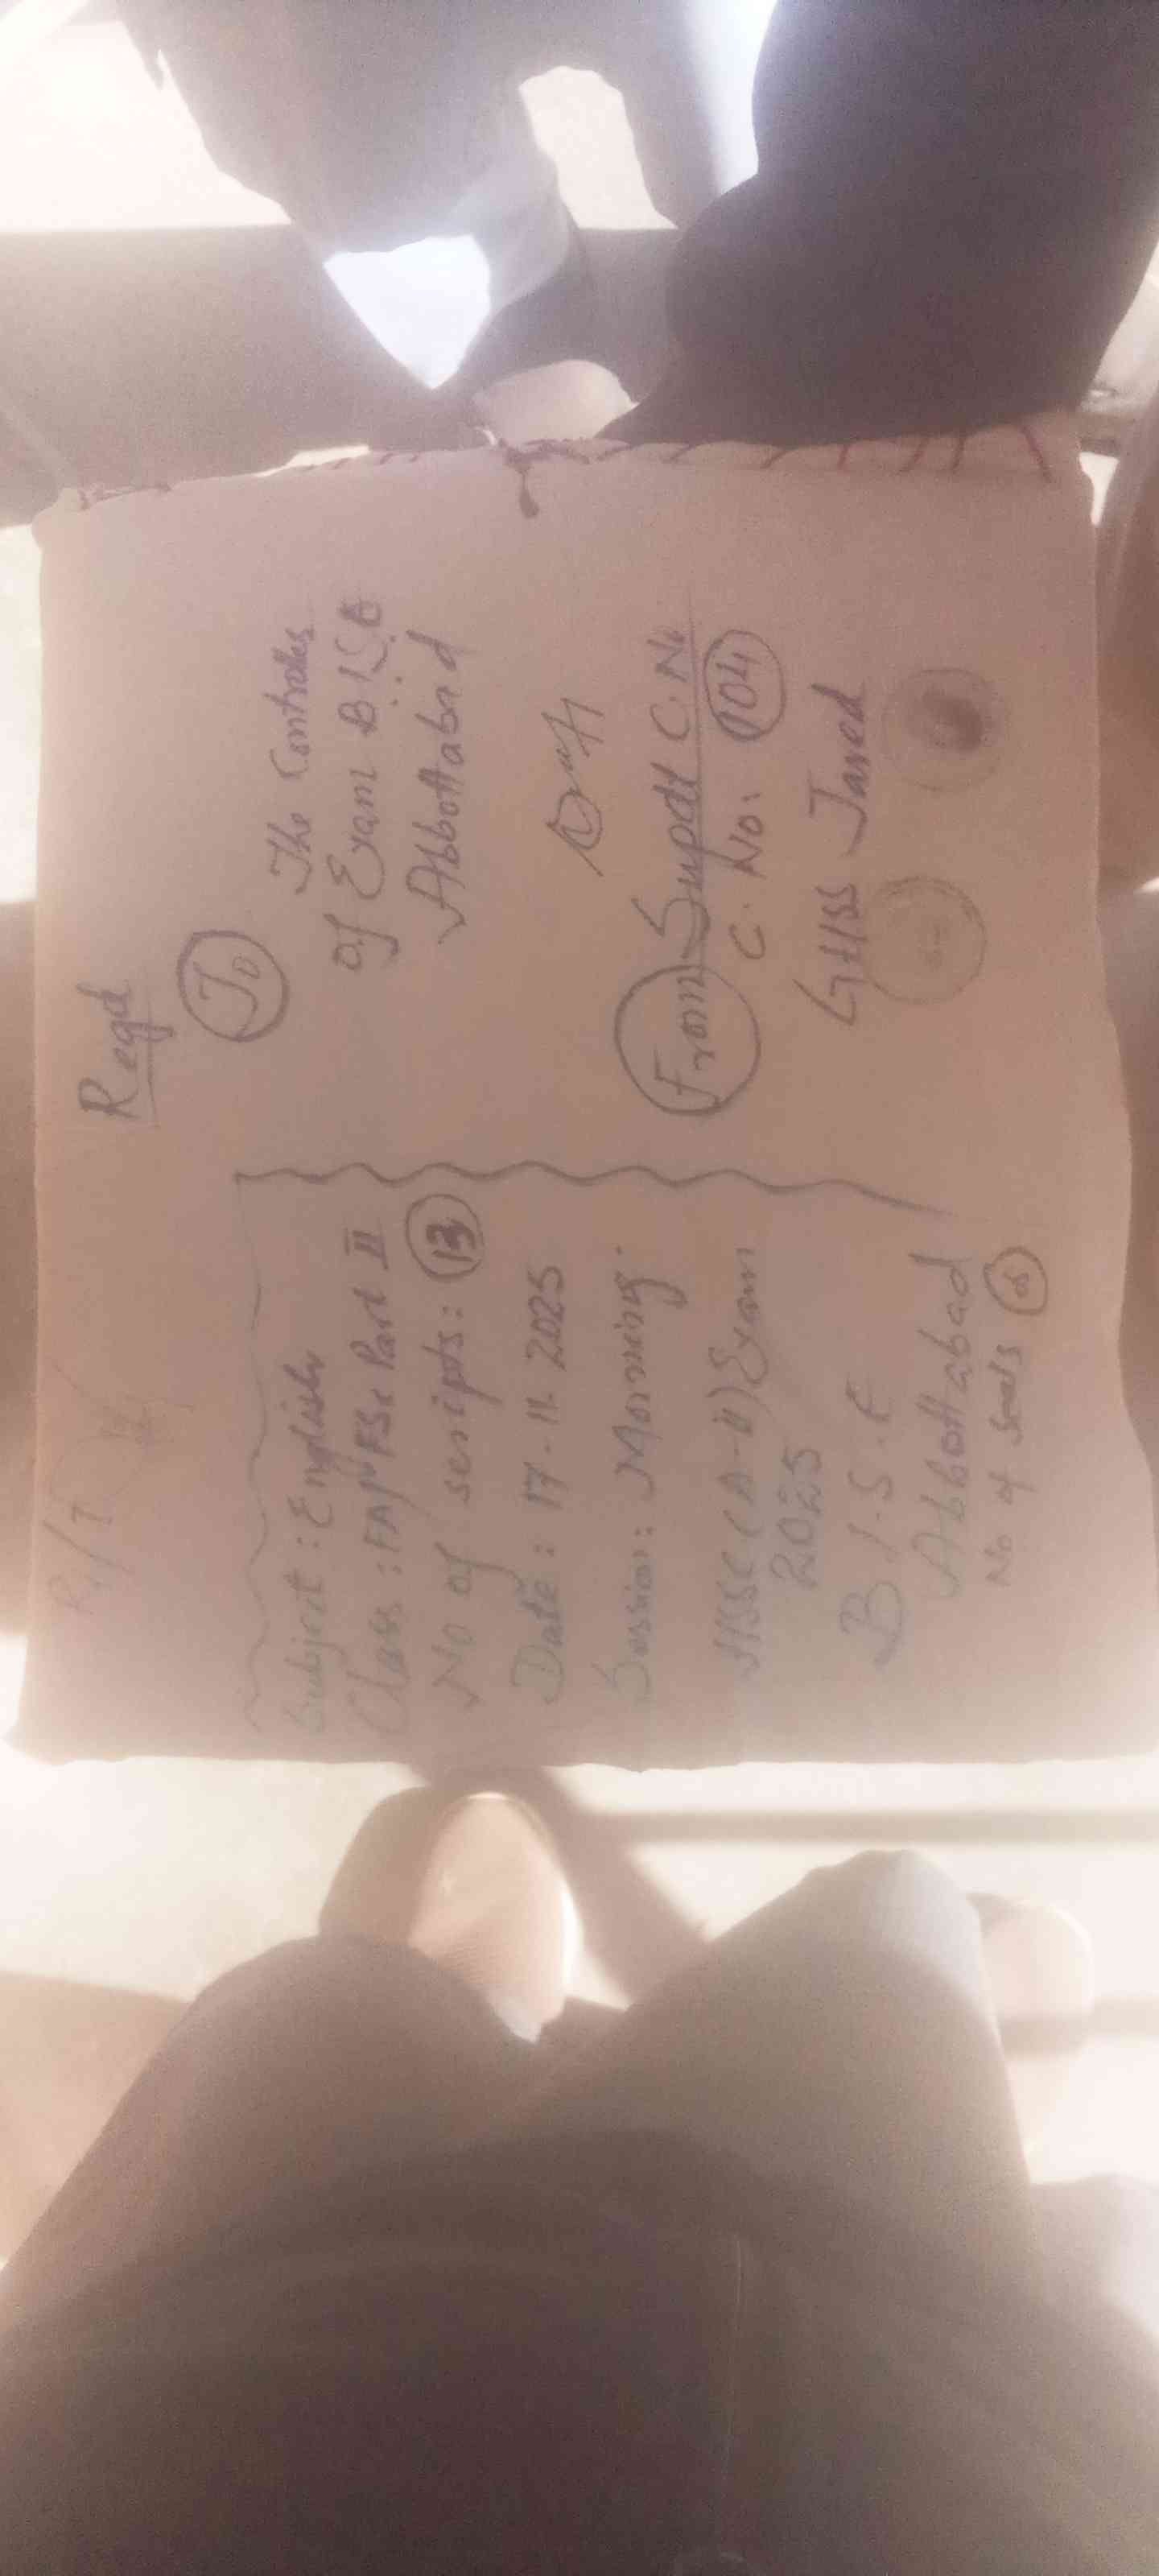 Regd
To
The Controller
of Exam B.I.S.E
Abbottabad
From Supdt C.No
C. No: 104
GHSS Jared
Subject : English
Class : FA/FSc Part II
No of scripts: 13
Date : 17-11-2025
Session: Morning.
HSSC (A-II) Exam
2025
B.I.S.E
Abbottabad
No of Seals